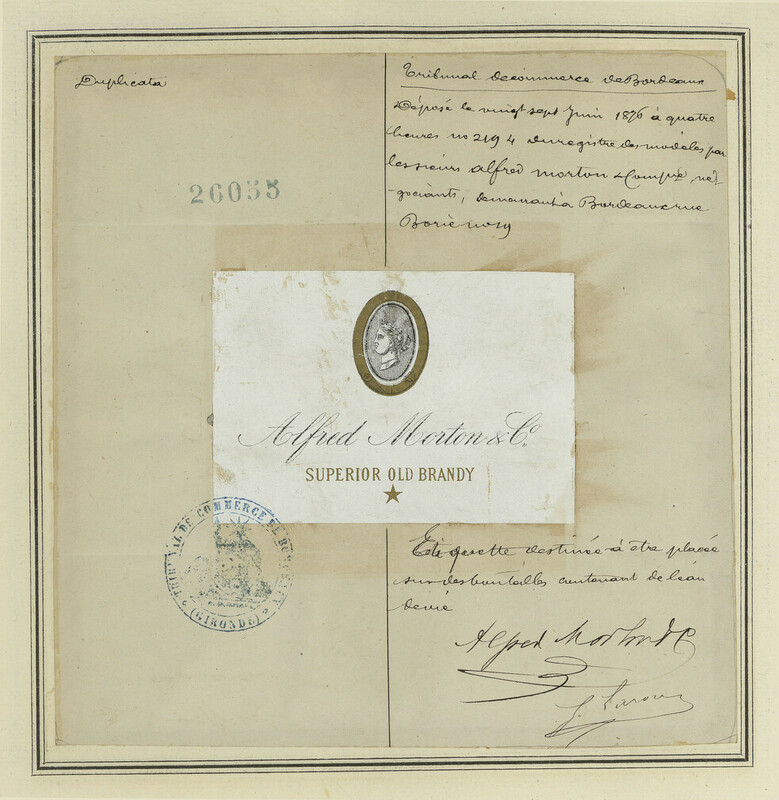 Duplicata
26055
Tribunal de commerce de Bordeaux
Déposé le vingt sept Juin 1876 à quatre
heures no 2194 du registre des modèles par
les sieurs Alfred Morton & Compie, né-
-gociants, demeurant à Bordeaux rue
Borie no 19
Alfred Morton & Co.
SUPERIOR OLD BRANDY
TRIBUNAL DE COMMERCE DE BORDEAUX
(GIRONDE)
Etiquette destinée à être placée
sur des bouteilles contenant de l'eau
de vie
Alfred Morton & Co